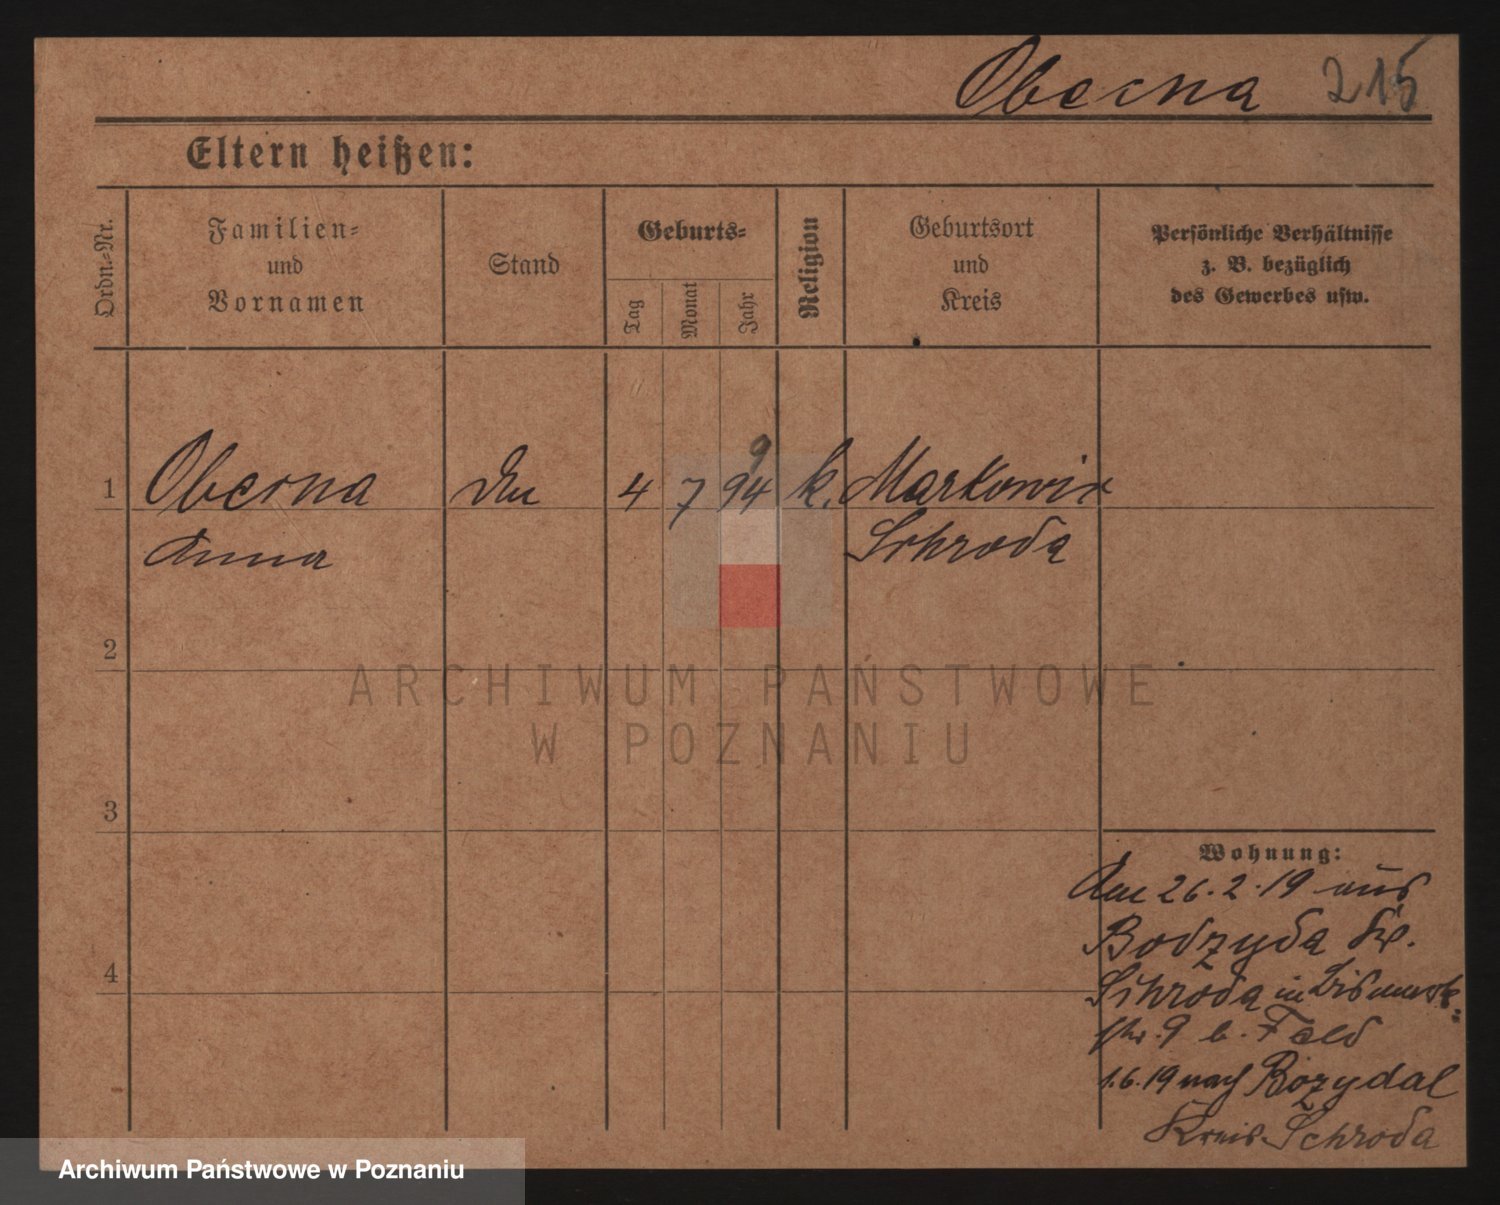 Obecna 215
Eltern heißen:
Ordn.-Nr.
Familien-
und
Vornamen
Stand
Geburts-
Tag
Monat
Jahr
Religion
Geburtsort
und
Kreis
Persönliche Verhältnisse
z. B. bezüglich
des Gewerbes usw.
9
1 Obecna 4 7 94 k. Markowic
Anna Schroda
2
ARCHIWUM PAŃSTWOWE
W POZNANIU
3
Wohnung:
Am 26.2.19 aus
Bodzyda Kr.
4
Schroda in Bismark-
str. 9 b. Feld
1.6.19 nach Rozydal
Kreis Schroda
Archiwum Państwowe w Poznaniu